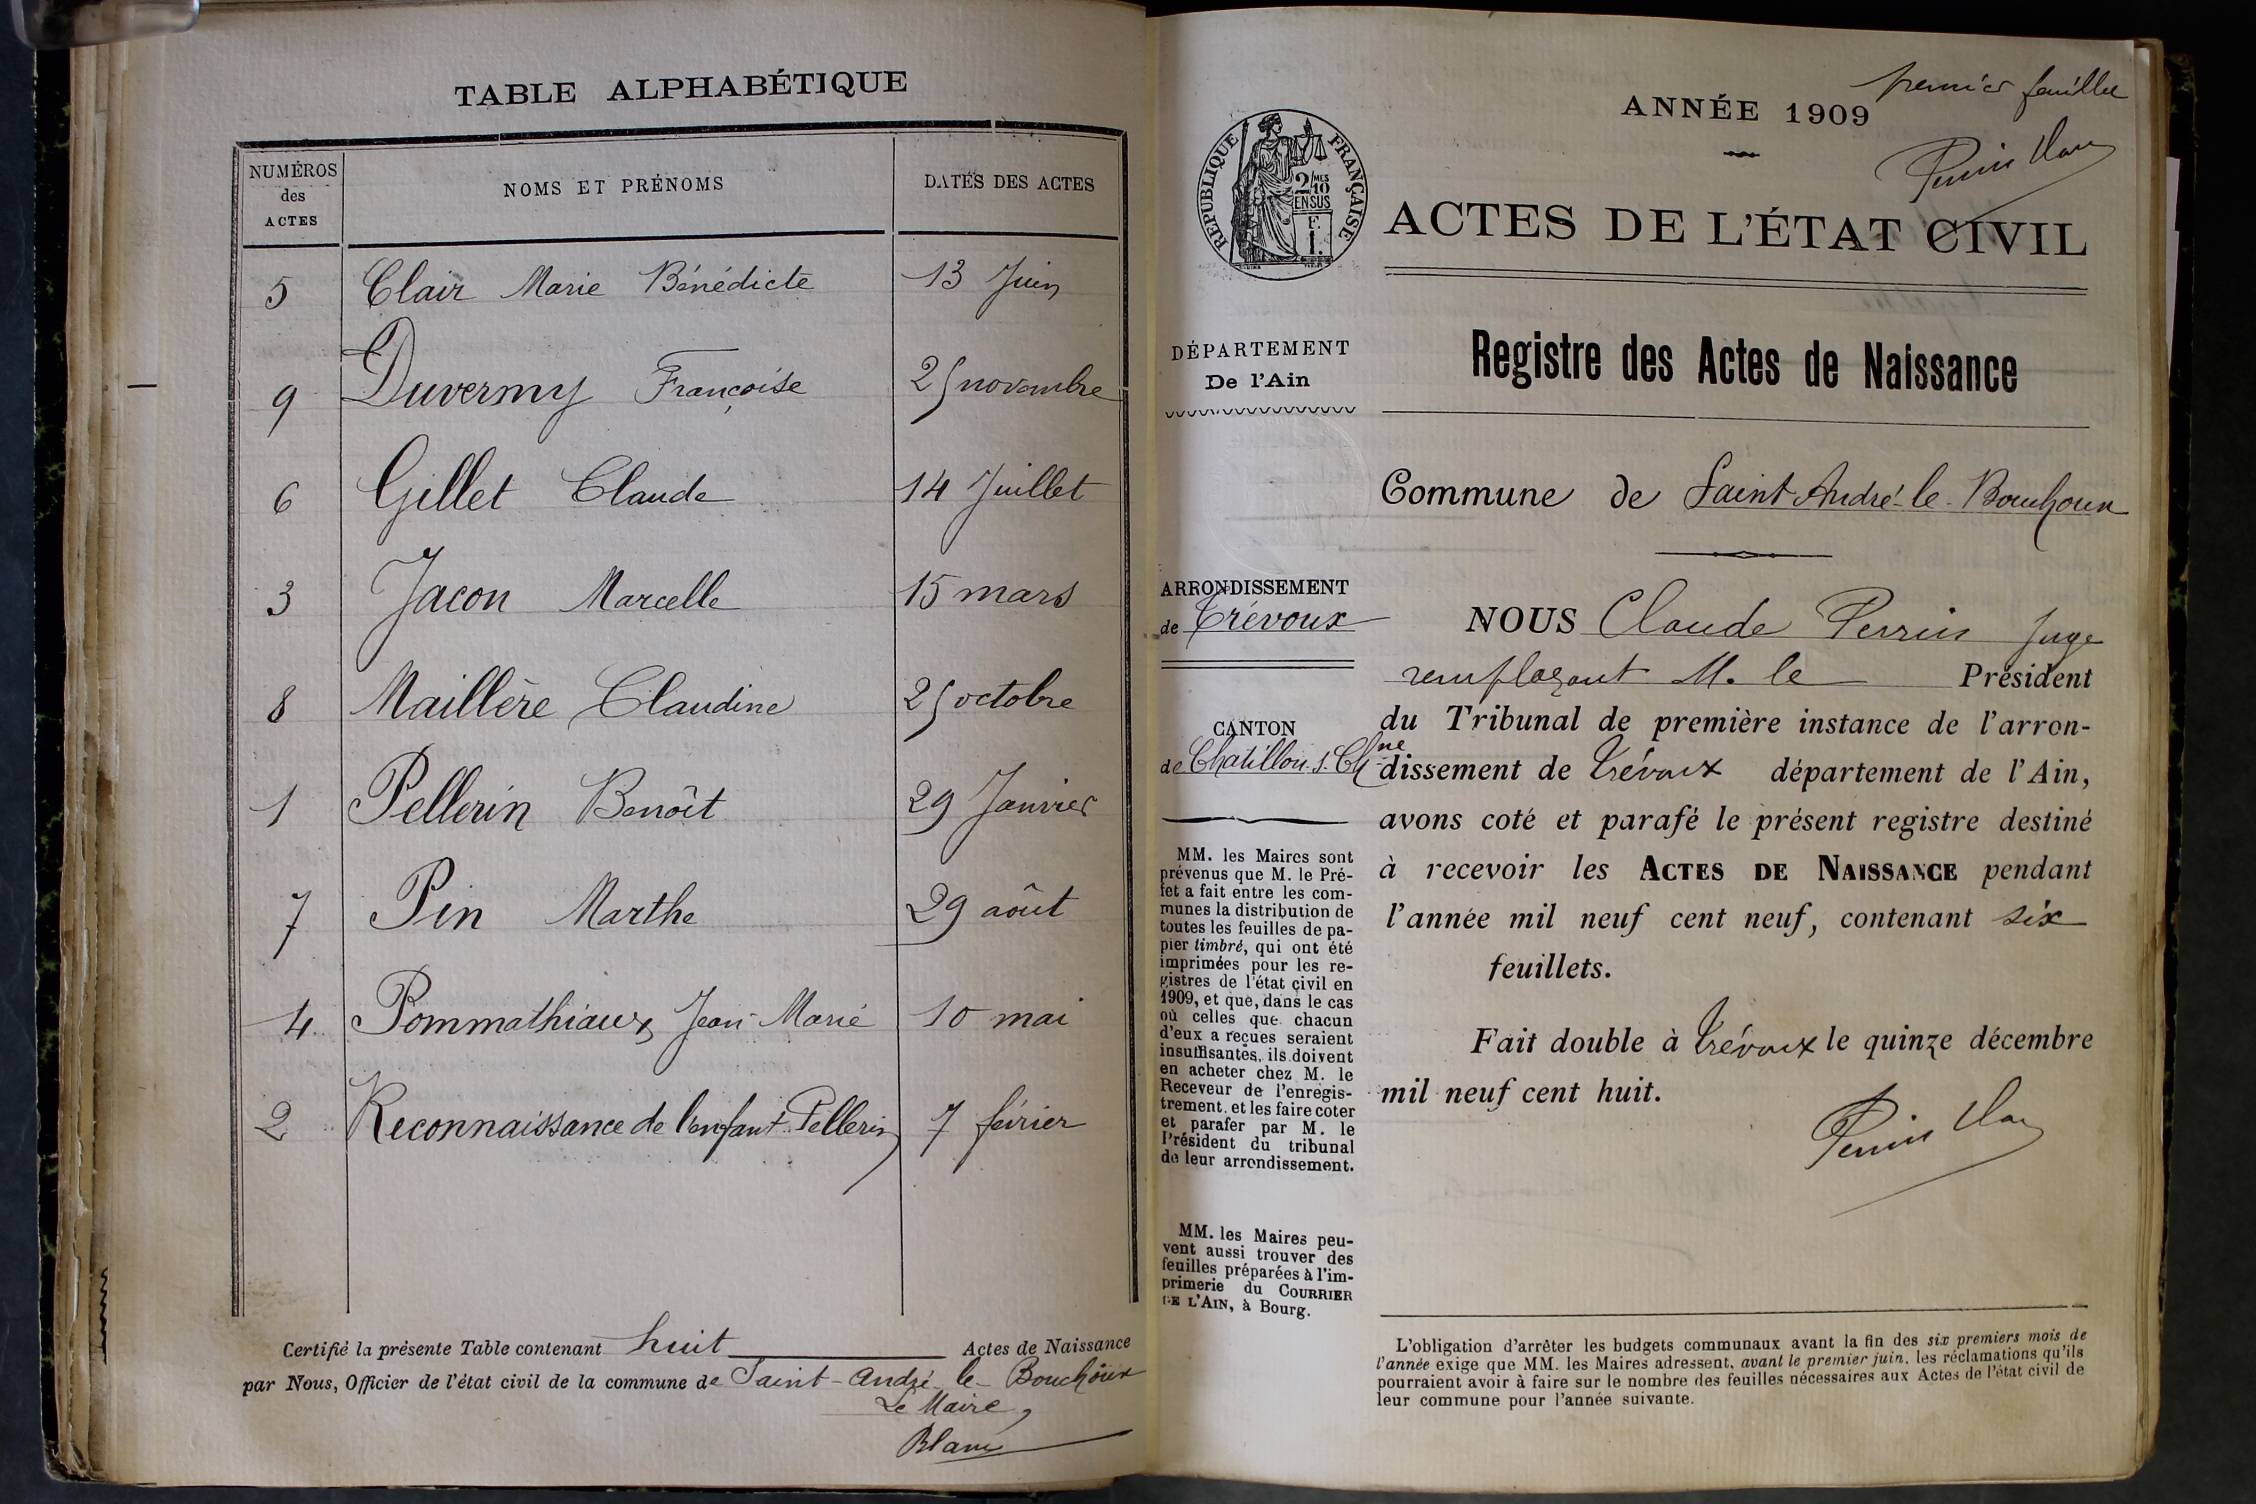 TABLE ALPHABÉTIQUE
NUMÉROS des ACTES NOMS ET PRÉNOMS DATES DES ACTES
5 Clair Marie Bénédicte 13 Juin
9 Duvermy Françoise 25 novembre
6 Gillet Claude 14 Juillet
3 Jacon Marcelle 15 mars
8 Maillère Claudine 25 octobre
1 Pellerin Benoît 29 Janvier
7 Pin Marthe 29 août
4 Pommathiaux Jean-Marie 10 mai
2 Reconnaissance de l'enfant Pellerin 7 février
Certifié la présente Table contenant huit Actes de Naissance
par Nous, Officier de l'état civil de la commune de Saint-André-le-Bouchoux
Le Maire,
Blanc
premier feuillet
ANNÉE 1909
Perrin
RÉPUBLIQUE FRANÇAISE
2/MES 10
EN SUS
F.
1.
ACTES DE L'ÉTAT CIVIL
DÉPARTEMENT
De l'Ain
Registre des Actes de Naissance
Commune de Saint André-le-Bouchoux
ARRONDISSEMENT
de Trévoux
CANTON
de Chatillon-s-Ch^ne
MM. les Maires sont
prévenus que M. le Pré-
fet a fait entre les com-
munes la distribution de
toutes les feuilles de pa-
pier timbré, qui ont été
imprimées pour les re-
gistres de l'état civil en
1909, et que, dans le cas
où celles que chacun
d'eux a reçues seraient
insuffisantes, ils doivent
en acheter chez M. le
Receveur de l'enregis-
trement, et les faire coter
et parafer par M. le
Président du tribunal
de leur arrondissement.
MM. les Maires peu-
vent aussi trouver des
feuilles préparées à l'im-
primerie du COURRIER
DE L'AIN, à Bourg.
NOUS Claude Perrin Juge
remplaçant M. le Président
du Tribunal de première instance de l'arron-
dissement de Trévoux département de l'Ain,
avons coté et parafé le présent registre destiné
à recevoir les ACTES DE NAISSANCE pendant
l'année mil neuf cent neuf, contenant six
feuillets.
Fait double à Trévoux le quinze décembre
mil neuf cent huit.
Perrin
L'obligation d'arrêter les budgets communaux avant la fin des six premiers mois de
l'année exige que MM. les Maires adressent, avant le premier juin, les réclamations qu'ils
pourraient avoir à faire sur le nombre des feuilles nécessaires aux Actes de l'état civil de
leur commune pour l'année suivante.